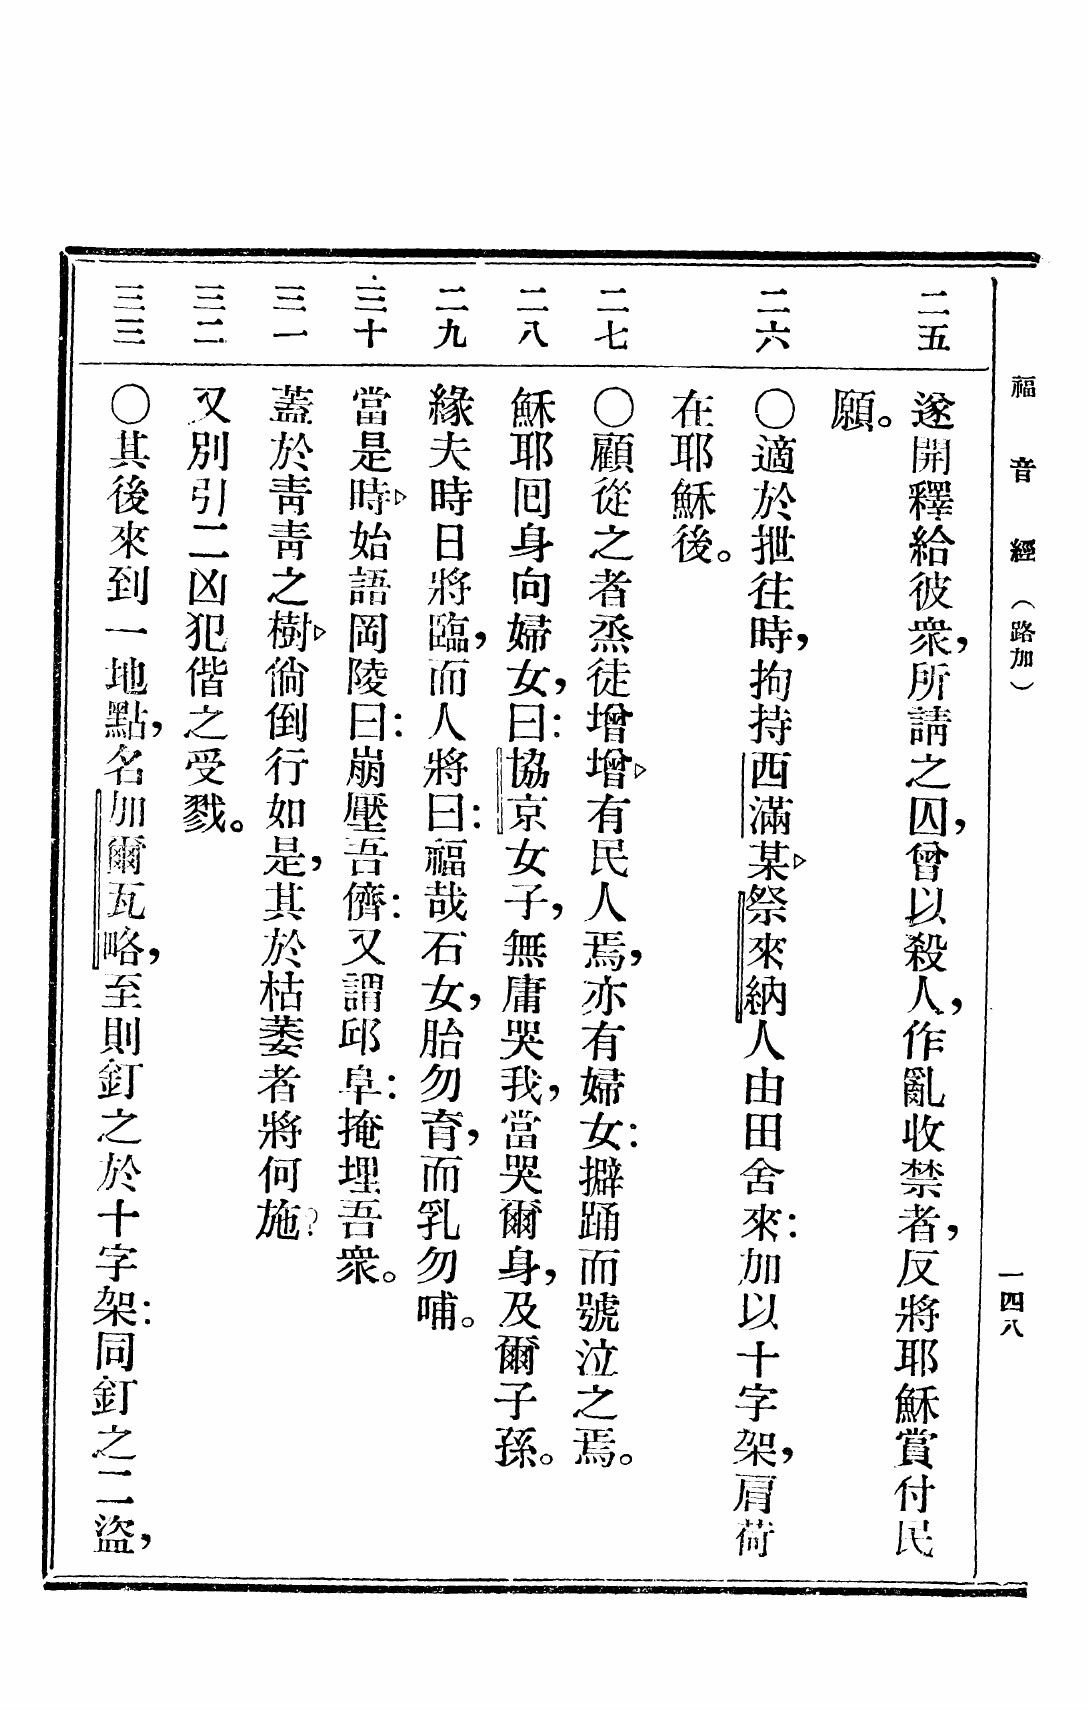 福音經（路加）
一四八
二五
遂開釋給彼衆，所請之囚，曾以殺人，作亂收禁者，反將耶穌賞付民
願。
二六
〇適於抴往時，拘持西滿某▷祭來納人由田舍來：加以十字架，肩荷
在耶穌後。
二七
〇顧從之者烝徒增增▷有民人焉，亦有婦女：擗踊而號泣之焉。
二八
穌耶囘身向婦女，曰：協京女子，無庸哭我，當哭爾身，及爾子孫。
二九
緣夫時日將臨，而人將曰：福哉石女，胎勿育，而乳勿哺。
三十
當是時▷始語岡陵曰：崩壓吾儕：又謂邱阜：掩埋吾衆。
三一
蓋於靑靑之樹▷倘倒行如是，其於枯萎者將何施？
三二
又別引二凶犯偕之受戮。
三三
〇其後來到一地點，名加爾瓦略，至則釘之於十字架：同釘之二盜，